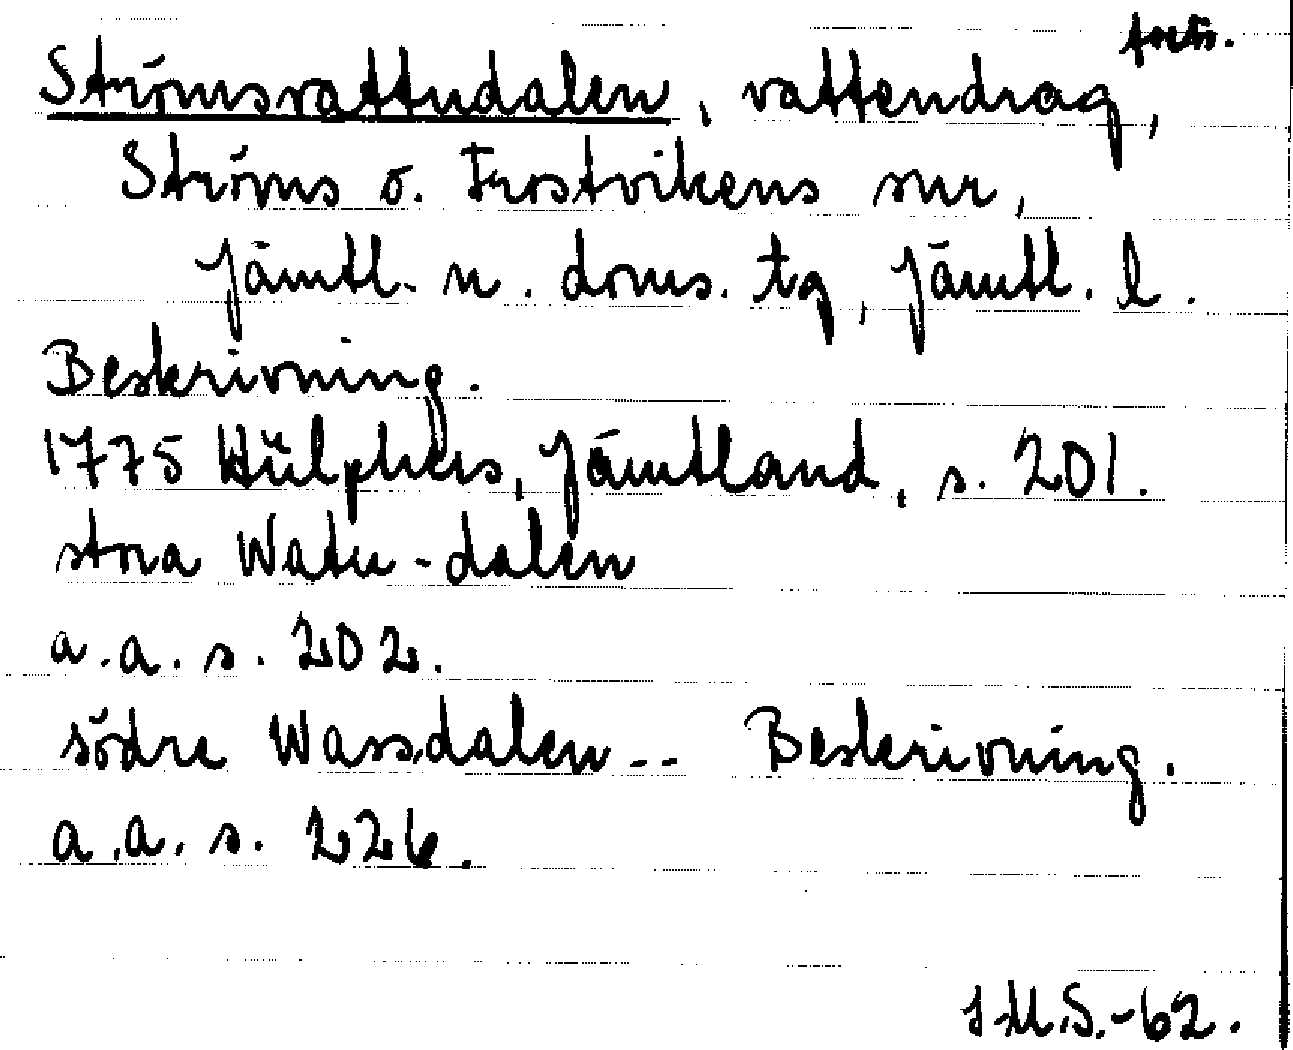 forts.
Strömsvattudalen, vattendrag,
Ströms o. Frostvikens snr,
Jämtl. n. doms. tg, Jämtl. l.
Beskrivning.
1775 Hülphers, Jämtland, s. 201.
stora Watu-dalen
a.a. s. 202.
södre Wassdalen -- Beskrivning.
a.a. s. 226.
J.M.S.-62.